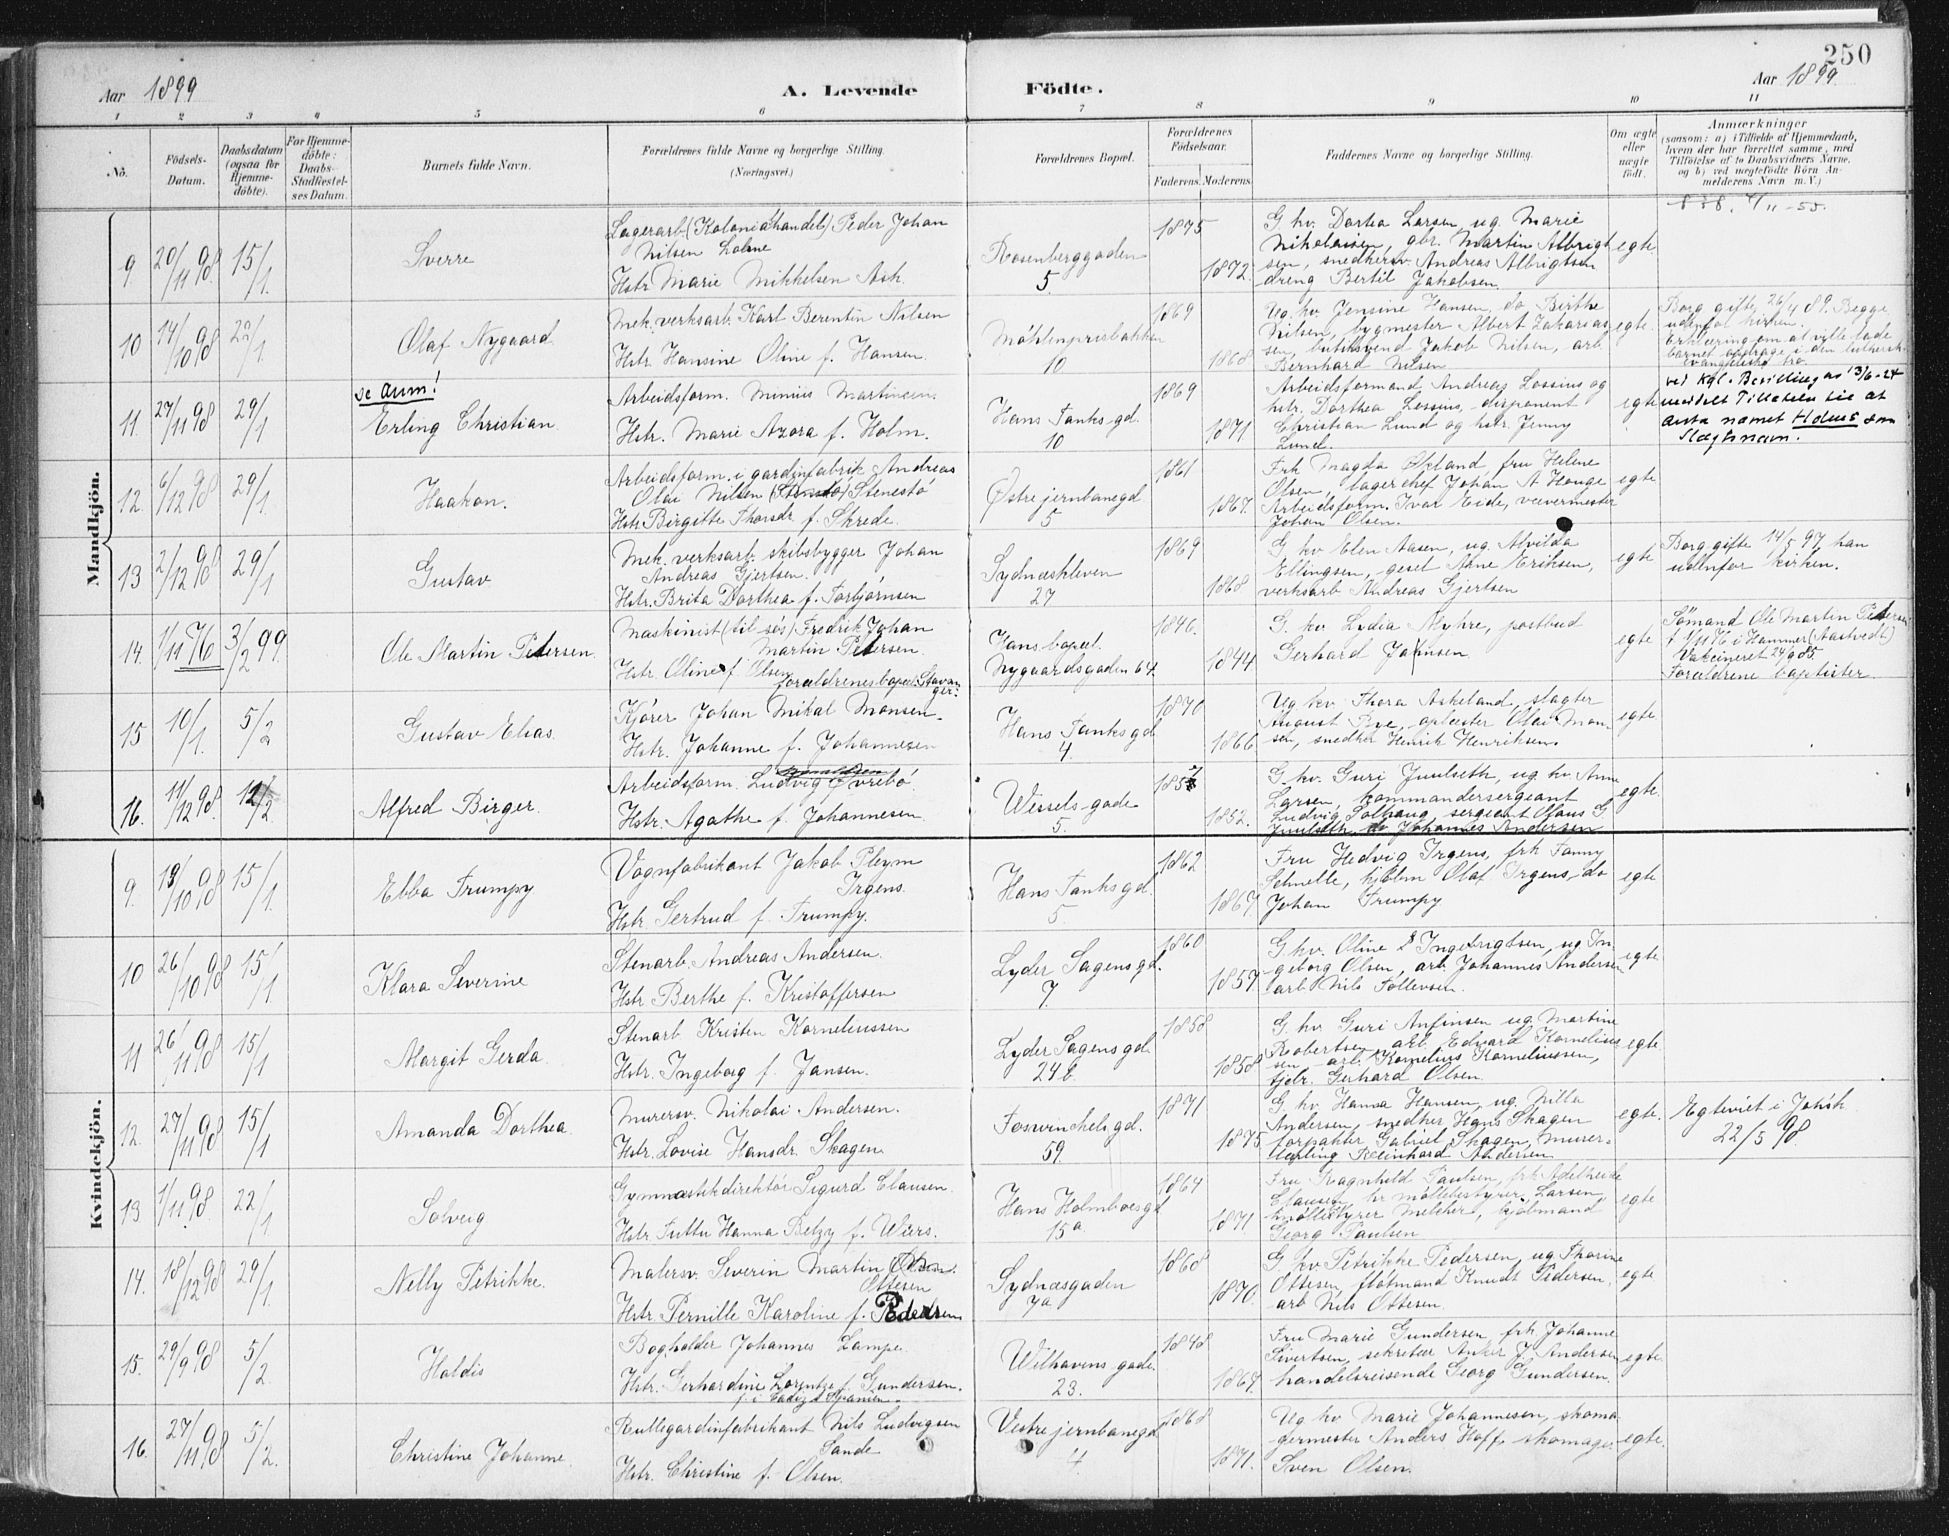 250
Aar 1899
A. Levende Födte.
Aar 1899.
1 2 3 4 5 6 7 8 9 10 11
No.
Födsels-Datum.
Daabsdatum (ogsaa för Hjemme-döbte).
For Hjemme-döbte: Daabs-Stadfæstel-ses Datum.
Barnets fulde Navn.
Forældrenes fulde Navne og borgerlige Stilling.
(Næringsvei.)
Forældrenes Bopæl.
Forældrenes Födselsaar.
Faderens. Moderens.
Faddernes Navne og borgerlige Stilling.
Om ægte eller uægte födt.
Anmærkninger
(saasom: a) i Tilfælde af Hjemmedaab,
hvem der har forrettet samme, med
Tilföielse af to Daabsvidners Navne,
og b) ved uægtefödte Börn An-
melderens Navn m. V.)
Mandkjön.
9 20/11 98 15/1 Sverre
Lagerarb. (Kolonialhandel) Peder Johan
Nilsen Lohne
Hstr Marie Mikkelsen Ask.
Rosenberggaden
5.
1875
1872.
G. kv. Dortea Larsen ug. Marie
Nikolaisen, gbr. Martin Albrigt
sen, snedkersv. Andreas Albrigtsen
dreng Bertil Jakobsen
egte
10 14/10 98 22/1 Olaf Nygaard
Mek. verksarb. Karl Berentin Nilsen
Hstr. Hansine Oline f. Hansen.
Möhlenprisbakken
10
1869
1868
Ug. kv. Jensine Hansen, do Birthe
Nilsen, bygmester Albert Zakarias
sen, butiksvend Jakob Nilsen, arb
Bernhard Nilsen
egte.
Borg. gifte 26/4 89. Begge
udenfor kirken.
Erklæring om at ville lade
barnet opdrage i den luthersk-
evangeliske tro
se Anm!
11. 27/11 98 29/1 Erling Christian
Arbeidsform. Minius Martinsen.
Hstr. Marie Azora f. Holm.
Hans Tanks gd.
10
1869
1871
Arbeidsformand Andreas Lossius og
hstr. Dorthea Lossius, disponent
Christian Lund og hstr. Jenny
Lund.
egte
ved kgl. Bevilling av 13/6-24
meddelt Tilladelse til at
anta namet Holme som
Slægtsnavn.
12. 6/12 98 29/1 Haakon.
Arbeidsform. i gardinfabrik Andreas
Olai Nilsen Stenestö
Hstr. Birgitte Thorsdr f. Skrede.
Östre jernbanegd
5
1861
1867.
Frk Magda Ökland, fru Helene
Olsen, lagerchef Johan A Hauge
Arbeidsform. Ivar Eide, vævermester
Johan Olsen.
egte
13 2/12 98 29/1 Gustav
Mek. verksarb. skibsbygger Johan
Andreas Gjertsen.
Hstr. Brita Dorthea f. Torbjörnsen
Sydnæskleven
27
1869
1868
G. kv Elen Aasen, ug. Alvilda
Ellingsen, gesel Arne Eriksen,
verksarb Andreas Gjertsen
egte
Borg gifte 14/5 97 han
udenfor kirken.
14. 1/11 76 3/2 99. Ole Martin Petersen.
Maskinist (til søs) Fredrik Johan
Martin Petersen.
Hstr. Oline f. Olsen
Forældrenes bopæl: Stavan
ger.
Hans bopæl.
Nygaardsgaden 64.
1846.
1844
G. kv Lydia Myhre, postbud
Gerhard Johnsen
egte
Sömand Ole Martin Petersen
f 1/11 76 i Hammer (Aastvedt)
Vakcineret 24/9 85.
Forældrene baptister.
15 10/1. 5/2 Gustav Elias.
Kjörer Johan Mikal Monsen.
Hstr. Johanne f. Johannesen
Hans Tanks gd
4.
1870
1866
Ug kv Thora Askeland, slagter
August Bye, oplæster Olai Mon
sen, snedker Henrik Henriksen.
egte
16. 11/12 98. 12/2 Alfred Birger.
Arbeidsform. Ludvig Övrebö.
Hstr. Agathe f. Johannesen
Wessels gade
5.
1857
1852.
G. kv. Guri Juulseth, ug. kv. Anne
Larsen, kommandersergeant
Ludvig Solhaug, sergeant Olaus G.
Juulseth, do Johannes Andersen
egte.
Kvindekjön.
9. 13/10 98 15/1. Ebba Trumpy
Vognfabrikant Jakob Pleym
Irgens.
Hstr. Gertrud f. Trumpy.
Hans Tanks gd.
5.
1862
1867.
Fru Hedvig Irgens, frk Fanny
Schnelle, kjöbm Olaf Irgens, do
Johan Trumpy
egte
10 26/10 98 15/1 Klara Severine
Stenarb. Andreas Andersen.
Hstr Berthe f. Kristoffersen
Lyder Sagens gd.
7.
1860
1857
G. kv. Oline Ingebrigtsen, ug In-
geborg Olsen, arb. Johannes Andersen
arb Nils Tollevsen.
egte
11 26/11 98 15/1 Margit Gerda.
Stenarb Kristen Korneliussen
Hstr. Ingeborg f. Jansen.
Lyder Sagens gd.
24 b.
1858
1858
G. kv. Guri Anfinsen ug. Martine
Robertsen, arb. Edvard Kornelius
sen arb. Kornelius Korneliussen,
tjdr. Gerhard Olsen.
egte
12. 27/11 98 15/1 Amanda Dorthea.
Murersv. Nikolai Andersen.
Hstr. Lovise Hansdr. Skagen
Foswinchels gd.
59.
1871
1875
G. kv Hanna Hansen, ug. Nilla
Andersen, snedker Hans Skagen
forpakter Gabriel Skagen, murer-
lærling Reinhard Andersen
egte.
Egteviet i Johsk
22/5 98.
13 1/11 98. 22/1 Solveig
Gymnastikdirektör Sigurd Clausen.
Hstr Tuttu Hanna Betzy f. Wiers.
Hans Holmboesgd
15 a
1864
1871
Fru Ragnhild Paulsen, frk Adelheide
Clausen, hr möllebestyrer Larsen,
möllestyrer Melcher, kjöbmand
Georg Paulsen
egte
14. 18/12 98 29/1. Nelly Petrikke.
Malersv. Severin Martin
Ottesen
Hstr. Pernille Karoline f. Pedersen
Sydnæsgaden
7 a
1868
1870.
G. kv Petrikke Pedersen, ug. Thorine
Ottesen, flötmand Knudt Pedersen,
arb Nils Ottesen.
egte
15. 29/9 98 5/2 Haldis
Bogholder Johannes Lampe.
Hstr. Gerhardine Lorentze f. Gundersen.
f. i Cadiz i Spanien.
Wilhavens gade
23.
1848
1867.
Fru Marie Gundersen, frk Johanne
Sivertsen, sekretær Anker J. Andersen
handelsreisende Georg Gundersen.
egte.
16. 27/11 98 5/2. Christine Johanne.
Rullegardinfabrikant Nils Ludvigsen
Sande
Hstr. Christine f. Olsen.
Vestre jernbanegd
4
1868
1871.
Ug kv. Marie Johannesen, skoma
germester Anders Hoff, skomager
Sven Olsen.
egte.